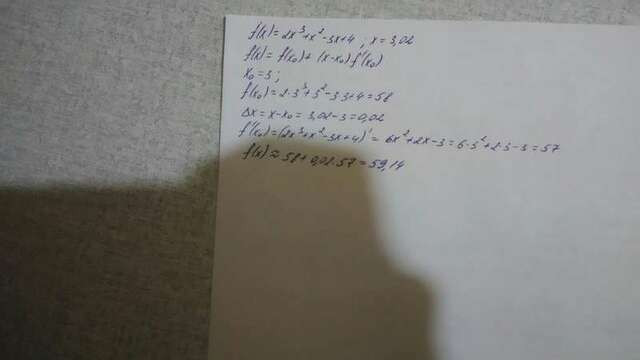 f(x) = 2x³+x²-3x+4 ; x = 3,02
f(x) = f(x₀) + (x-x₀) f'(x₀)
x₀ = 3 ;
f(x₀) = 2·3³+3²-3·3+4 = 58
Δx = x-x₀ = 3,02-3 = 0,02
f'(x₀) = (2x³+x²-3x+4)' = 6x²+2x-3 = 6·3²+2·3-3 = 57
f(x) ≈ 58+0,02·57 = 59,14